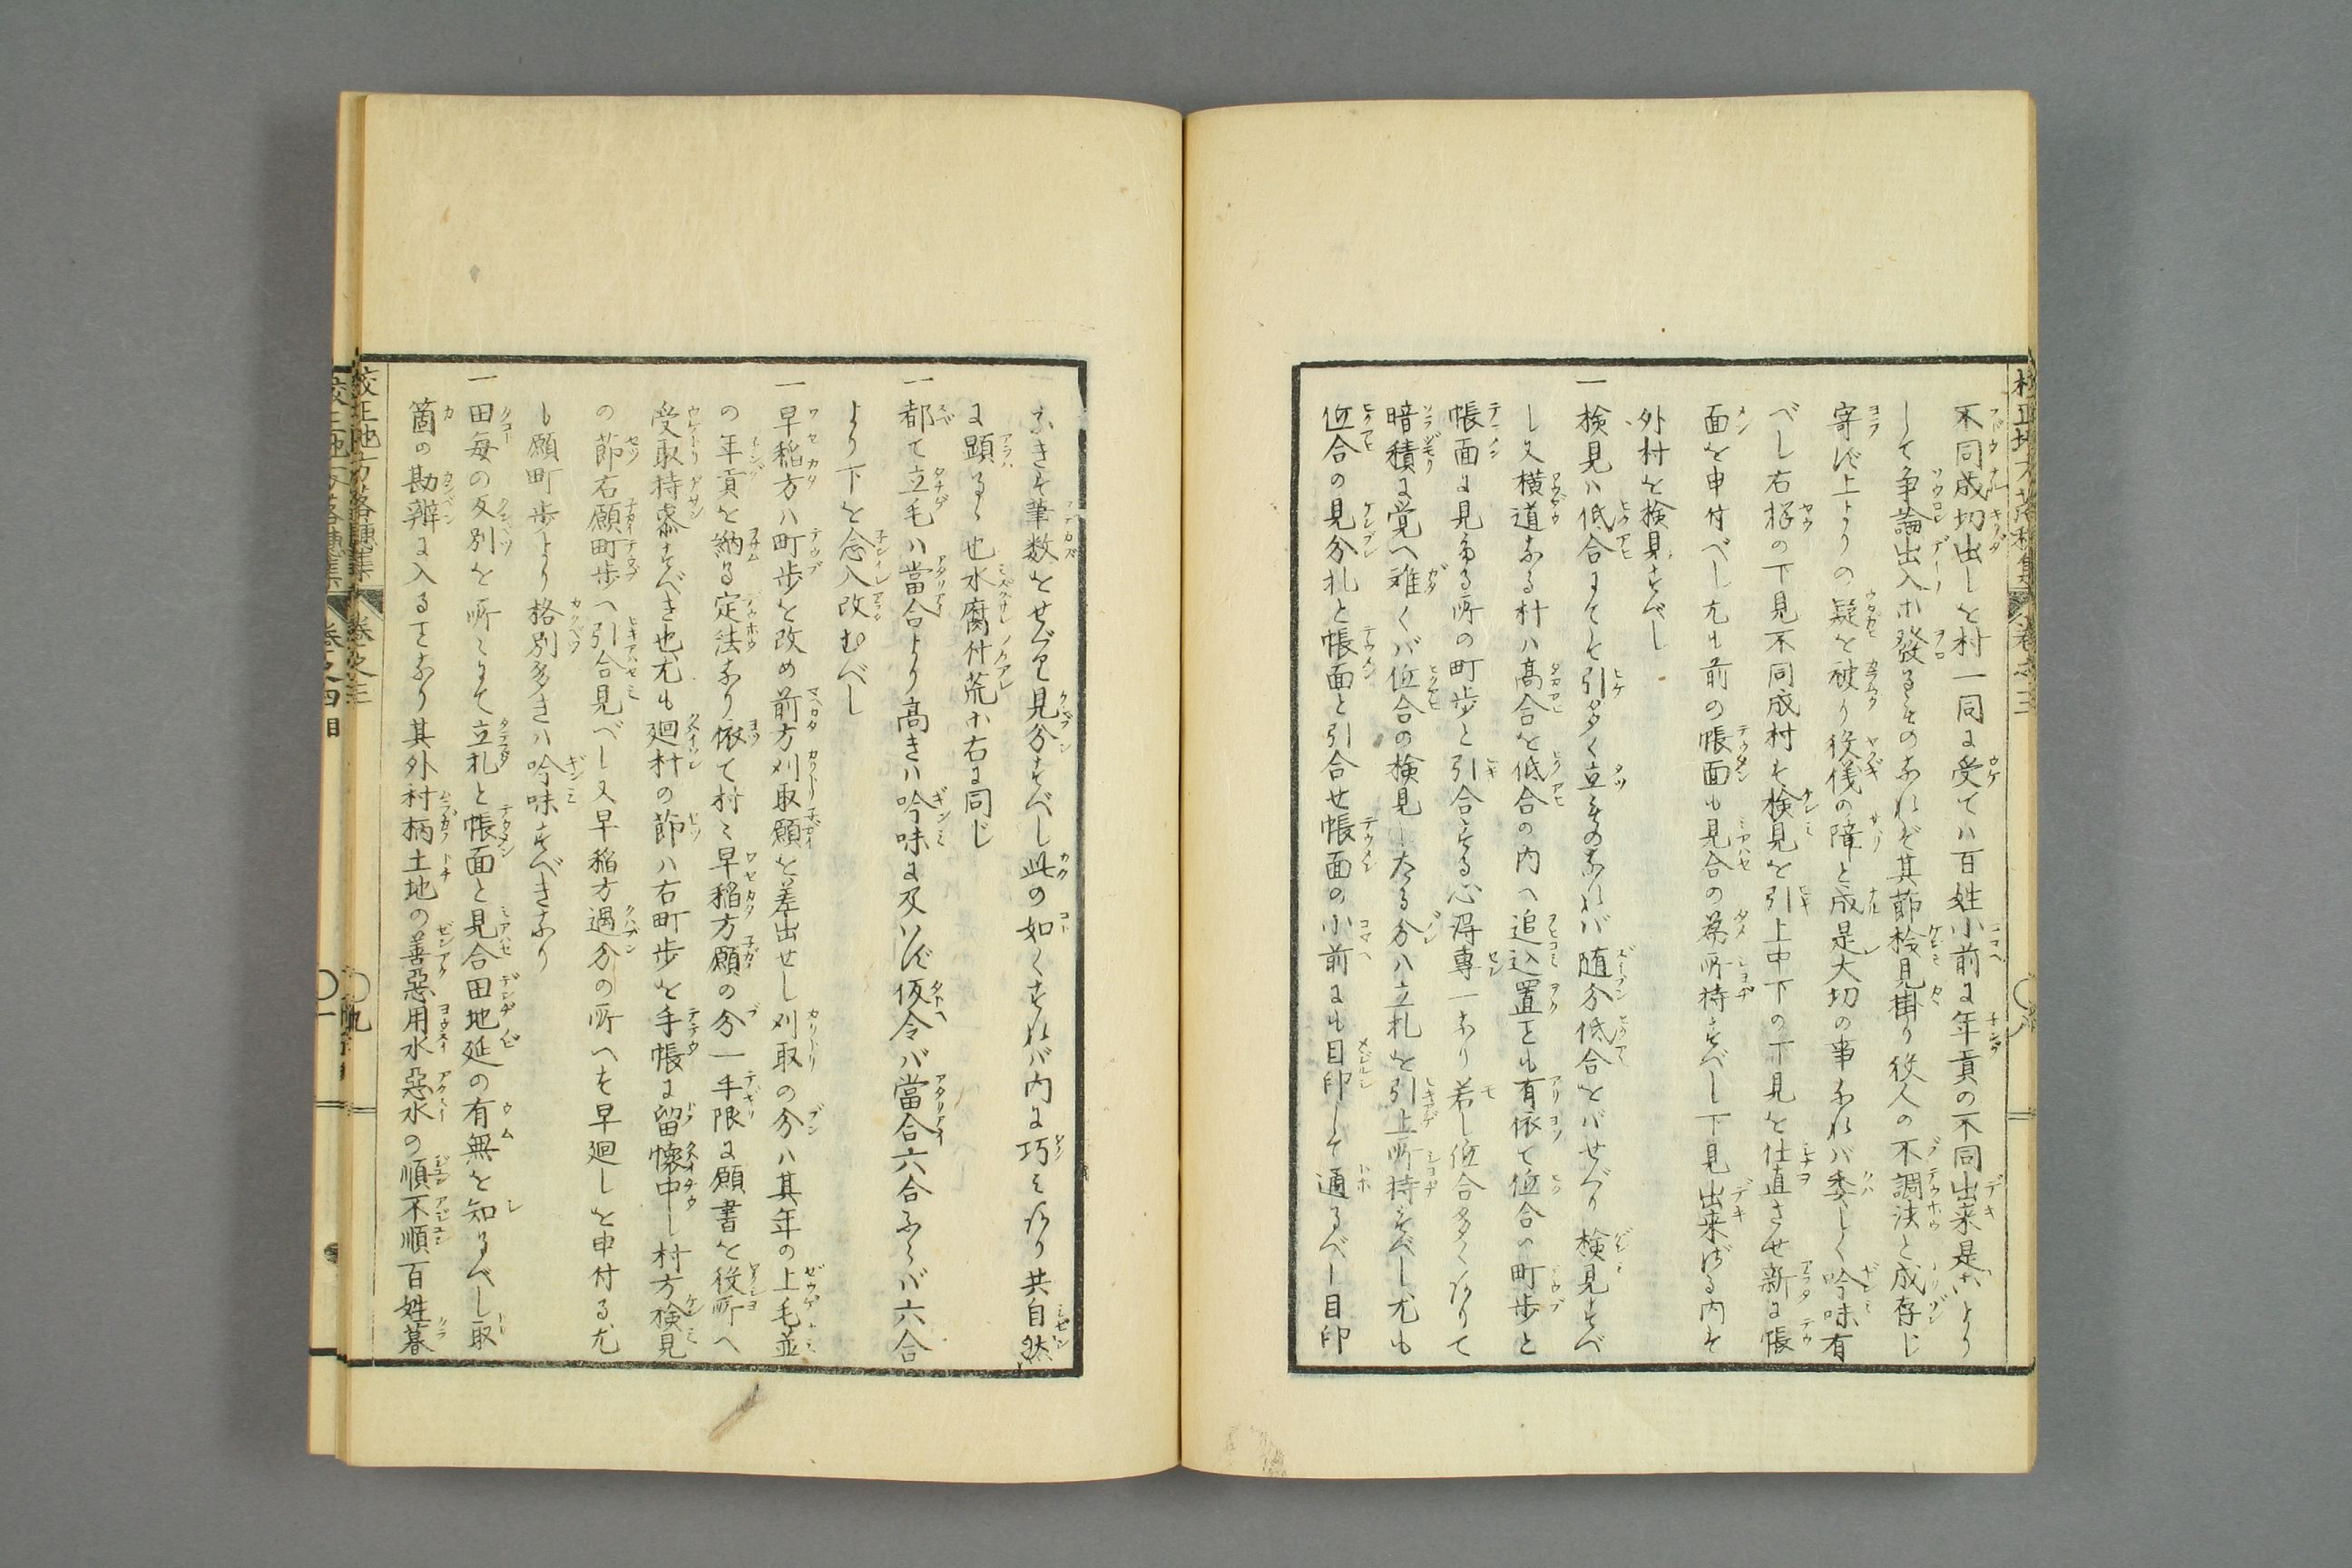 校正地方落穂集 巻之三 〇八
不同成切出しを村一同に受ては百姓小前に年貢の不同出来是より
して争論出入ホ發るものなれど其節検見掛り役人の不調法と成存じ
寄ず上よりの疑を被り役儀の障と成是大切の事なれば委しく吟味有
べし右様の下見不同成村は検見を引上中下の下見を仕直させ新に帳
面を申付べし尤も前の帳面も見合の為所持すべし下見出来ざる内は
外村を検見すべし
一検見ハ低合までは引多く立ものなれば随分低合をバせぐり検見すべ
し又横道なる村ハ高合を低合の内へ追込置ことも有依て低合の町歩と
帳面に見ゆる所の町歩と引合する心得専一なり若し低合多くありて
暗積に覚へ難くバ低合の検見したる分ハ立札を引上所持すべし尤も
低合の見分札と帳面と引合せ帳面の小前にも目印して通るべし目印
なきは筆数をせぐり見分すべし此の如くすれば内に巧みあり共自然
に顕るゝ也水腐付荒ホ右に同じ
一都て立毛ハ當合より高きハ吟味に及バず仮令バ當合六合ならバ六合
より下を念入改むべし
一早稲方ハ町歩を改め前方刈取願を差出せし刈取の分ハ其年の上毛並
の年貢を納る定法なり依て村々早稲方願の分一手限に願書を役所へ
受取持参すべき也尤も廻村の節ハ右町歩を手帳に留懐中し村方検見
の節右願町歩へ引合見べし又早稲方過分の所へは早廻しを申付る尤
も願町歩より格別多きハ吟味すべきなり
一田毎の反別を所々にて立札と帳面と見合田地延の有無を知るべし取
箇の勘辨に入ることなり其外村柄土地の善悪用水悪水の順不順百姓暮
校正地方落穂集 巻之三 〇九
校正地方落穂集 巻之四目 〇一